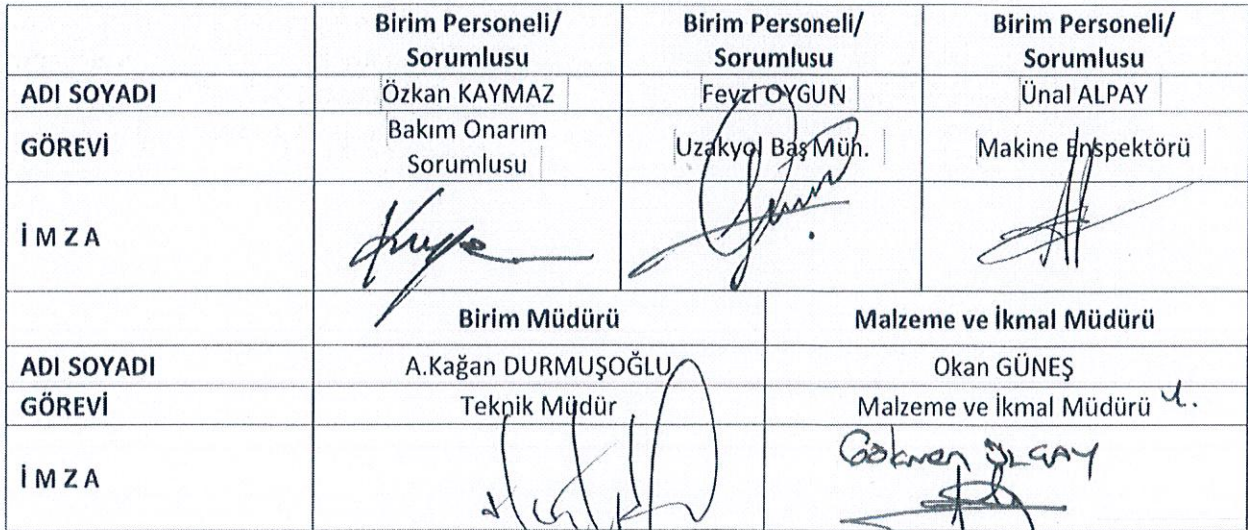 Birim Personeli/ Birim Personeli/ Birim Personeli/
Sorumlusu Sorumlusu Sorumlusu
ADI SOYADI Özkan KAYMAZ Feyzi OYGUN Ünal ALPAY
GÖREVİ Bakım Onarım Sorumlusu Uzakyol Baş Müh. Makine Enspektörü
İ M Z A
Birim Müdürü Malzeme ve İkmal Müdürü
ADI SOYADI A.Kağan DURMUŞOĞLU Okan GÜNEŞ
GÖREVİ Teknik Müdür Malzeme ve İkmal Müdürü
İ M Z A Gökmen